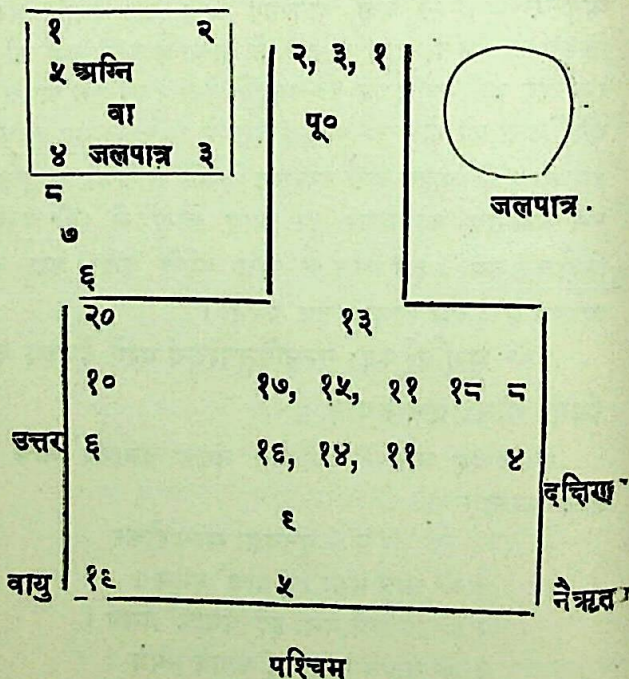 १ २
५ अग्नि
वा
४ जलपात्र ३
२, ३, १
पू०
जलपात्र
८
७
६
२० १३
१० १७, १५, ११ १८ ८
उत्तर ६ १६, १४, ११ ४ दक्षिण
९
वायु १९ ५ नैऋत
पश्चिम